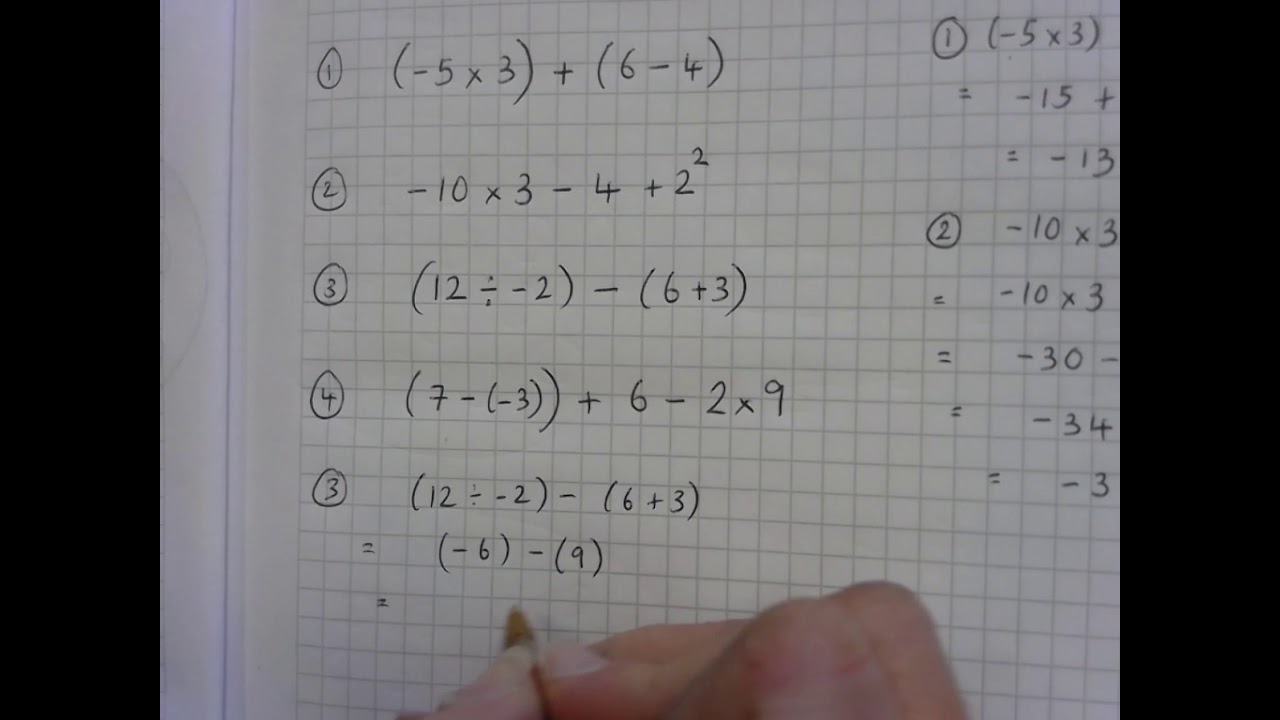 ① (-5 × 3) + (6 - 4)
② -10 × 3 - 4 + 2²
③ (12 ÷ -2) - (6 + 3)
④ (7 - (-3)) + 6 - 2 × 9
③ (12 ÷ -2) - (6 + 3)
= (-6) - (9)
=
① (-5 × 3)
= -15 +
= -13
② -10 × 3
= -10 × 3
= -30 -
= -34
= -3